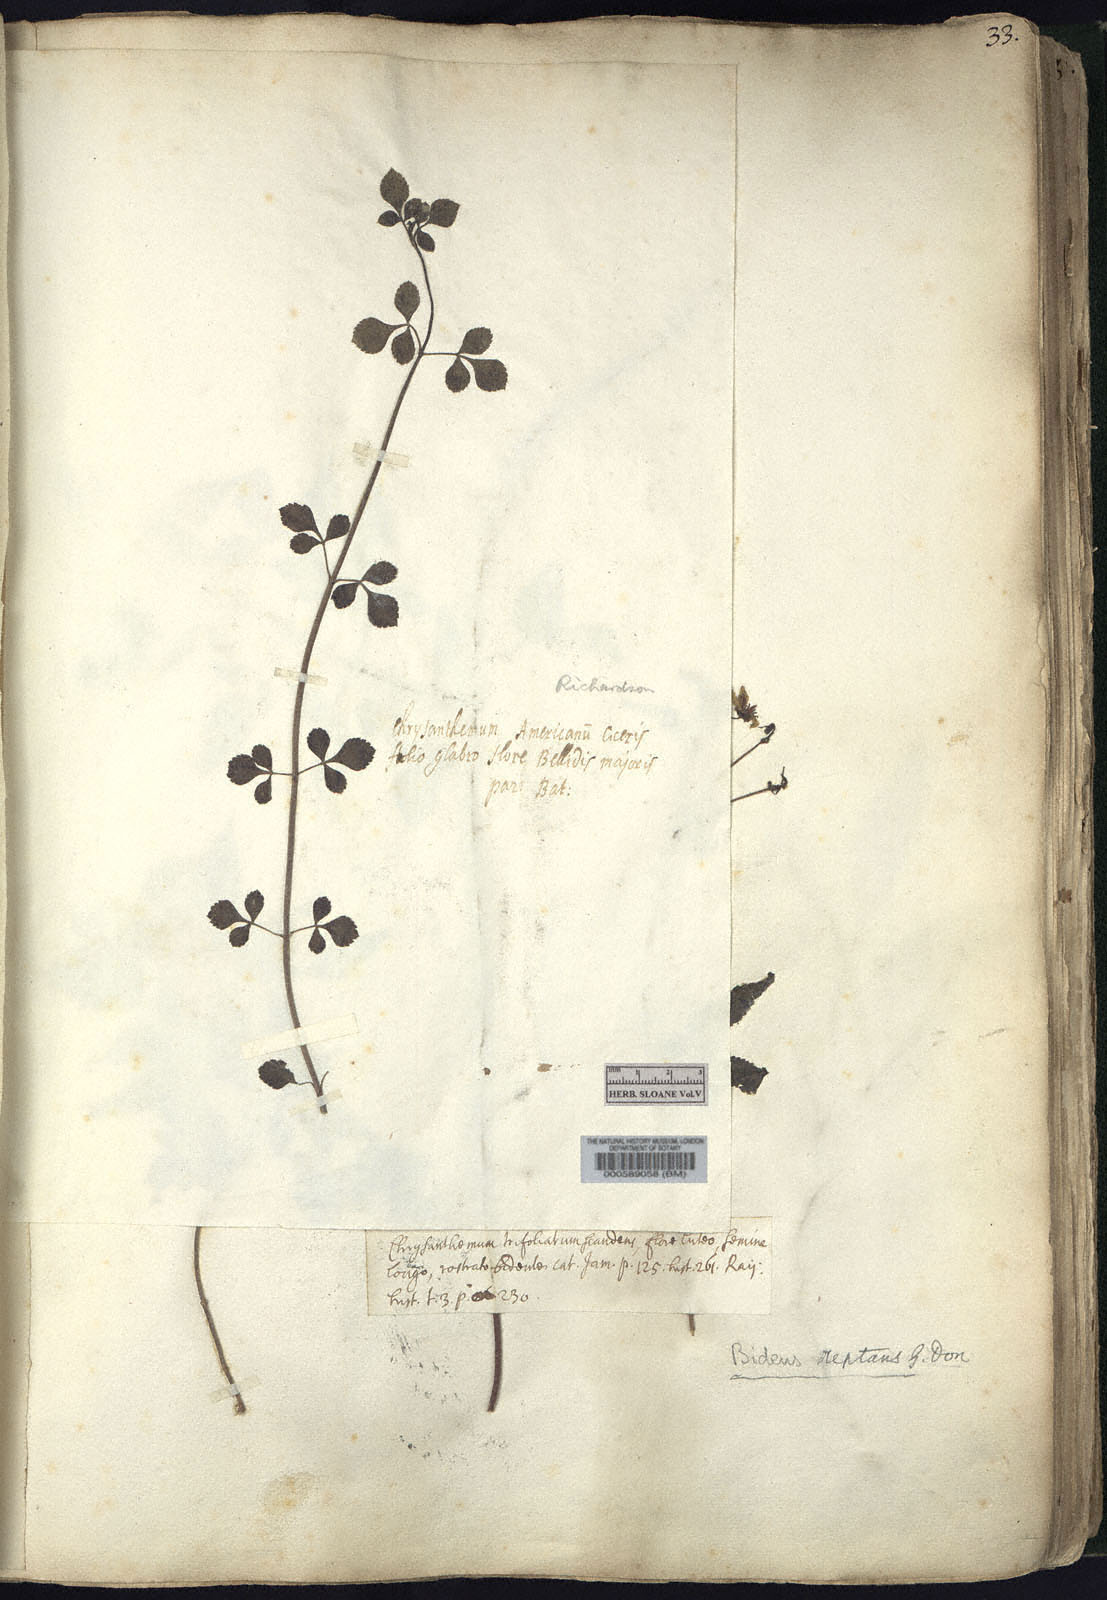 33.
Richardson
Chrysanthemum Americanū Ciceris
folio glabro flore Bellidis majoris
par: Bat:
mm 1 2 3
HERB. SLOANE Vol.V
THE NATURAL HISTORY MUSEUM, LONDON
DEPARTMENT OF BOTANY
000589058 (BM)
Chrysanthemum trifoliatum scandens, flore luteo, semine
longo, rostrato bidente. cat. Jam. p. 125. hist. 261. Raij:
hist. t. 3. p. 230.
Bidens reptans G. Don